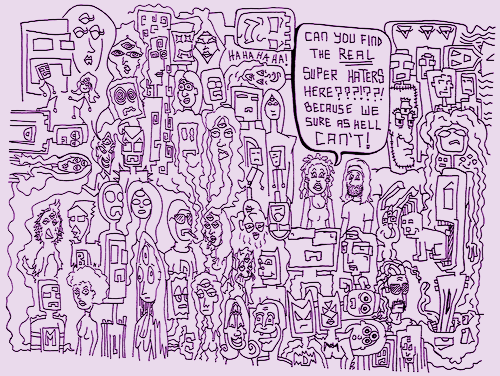 HAHAHAHA!
CAN YOU FIND
THE REAL
SUPER HATERS
HERE????!??!
BECAUSE WE
SURE AS HELL
CAN'T!
M